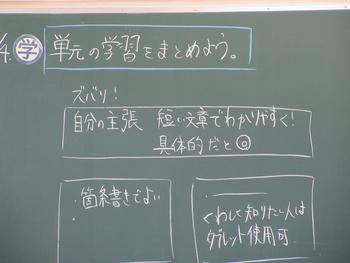 4. 学 単元の学習をまとめよう。
ズバリ!
自分の主張 短い文章でわかりやすく!
具体的だと◎
・箇条書きでよい
・
・
くわしく知りたい人は
タブレット使用可